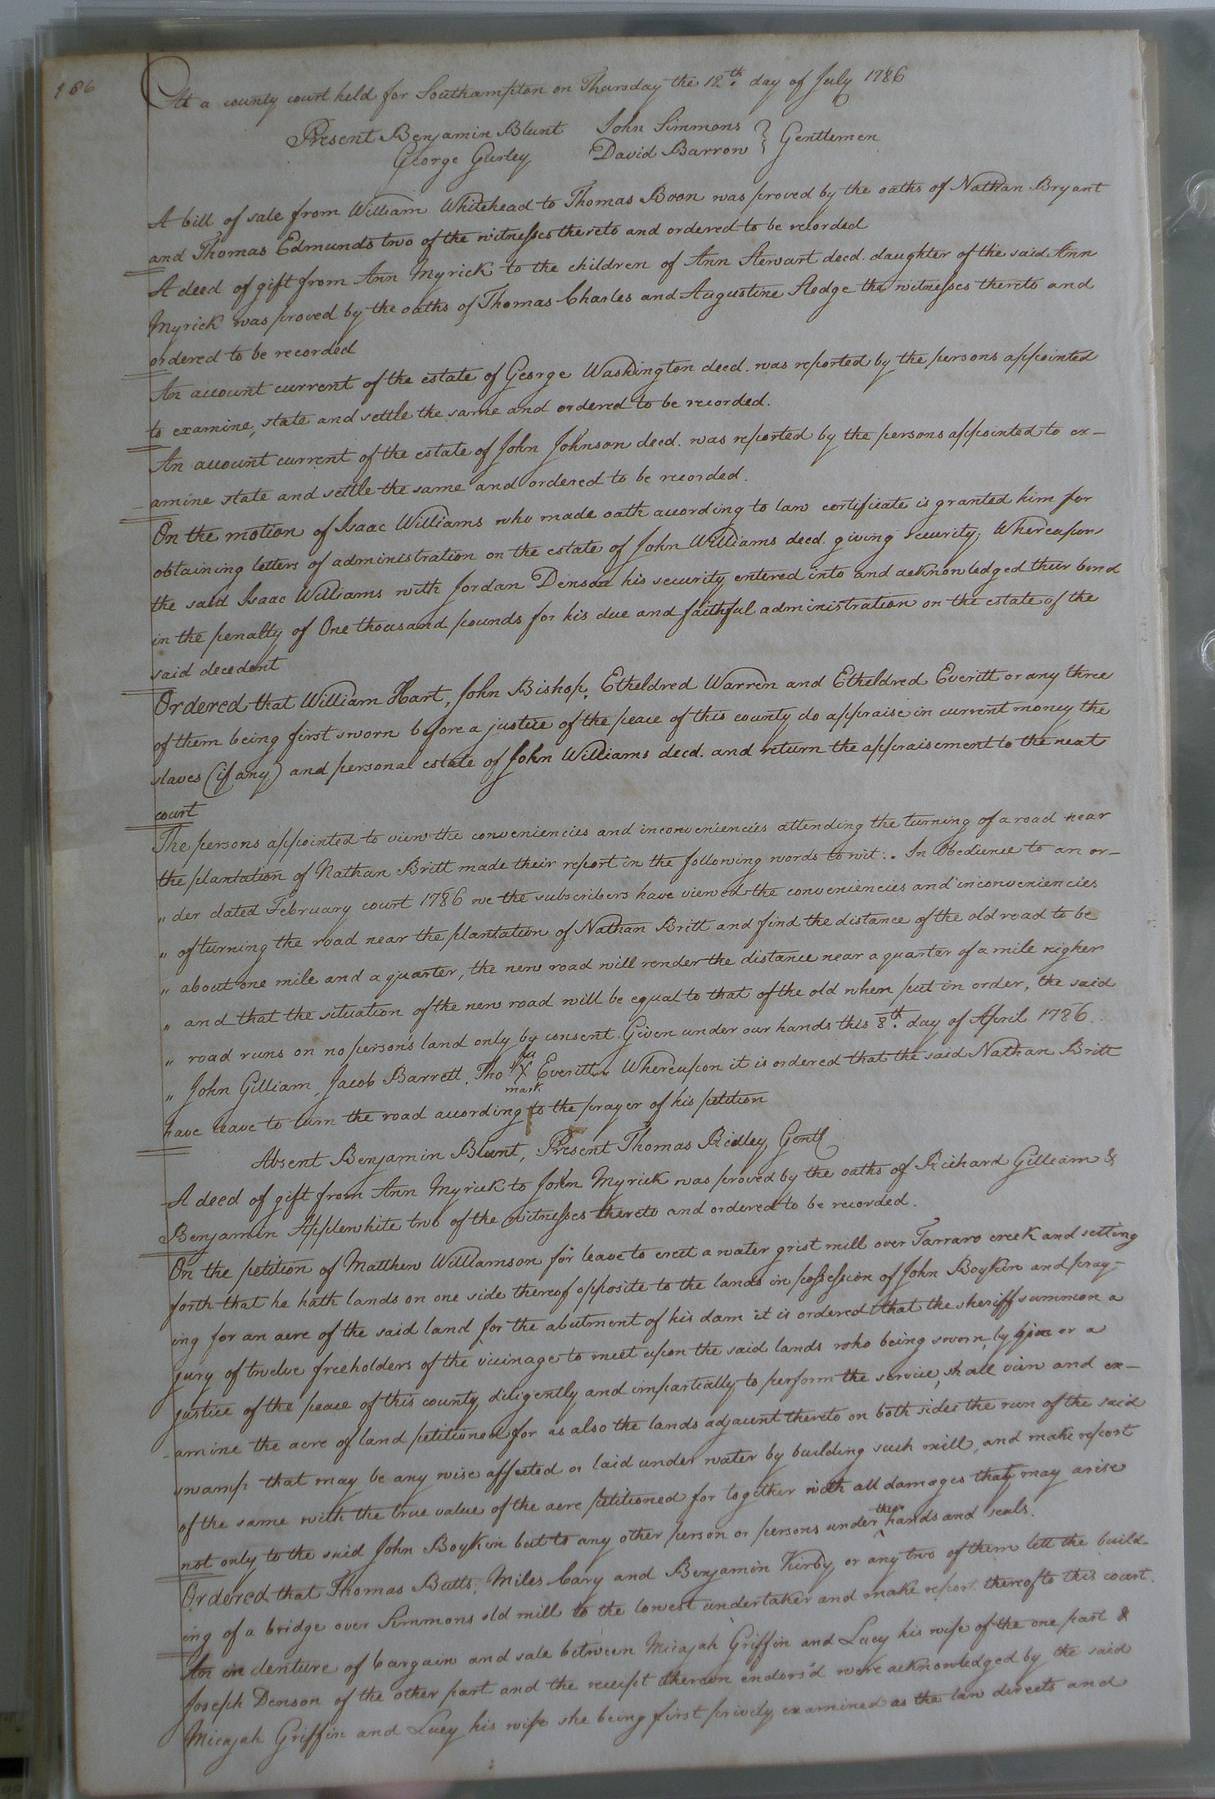 186
At a county court held for Southampton on Thursday the 12th. day of July 1786
Present Benjamin Blunt John Simmons } Gentlemen
George Gurley David Barrow
A bill of sale from William Whitehead to Thomas Boon was proved by the oaths of Nathan Bryant
and Thomas Edmunds two of the witnesses thereto and ordered to be recorded
A deed of gift from Ann Myrick to the children of Ann Stewart decd. daughter of the said Ann
Myrick was proved by the oaths of Thomas Charles and Augustine Hodge the witnesses thereto and
ordered to be recorded
An account current of the estate of George Washington decd. was reported by the persons appointed
to examine, state and settle the same and ordered to be recorded.
An account current of the estate of John Johnson decd. was reported by the persons appointed to ex-
amine state and settle the same and ordered to be recorded.
On the motion of Isaac Williams who made oath according to law certificate is granted him for
obtaining letters of administration on the estate of John Williams decd. giving security; Whereupon
the said Isaac Williams with Jordan Denson his security entered into and acknowledged their bond
in the penalty of One thousand pounds for his due and faithful administration on the estate of the
said decedent
Ordered that William Hart, John Bishop, Etheldred Warren and Etheldred Everitt or any three
of them being first sworn before a justice of the peace of this county do appraise in current money the
slaves (if any) and personal estate of John Williams decd. and return the appraisement to the next
court
The persons appointed to view the conveniencies and inconveniencies attending the turning of a road near
the plantation of Nathan Britt made their report in the following words to wit: „ In Obedience to an or-
„ der dated February court 1786 we the subscribers have viewed the conveniencies and inconveniencies
„ of turning the road near the plantation of Nathan Britt and find the distance of the old road to be
„ about one mile and a quarter, the new road will render the distance near a quarter of a mile nigher
„ and that the situation of the new road will be equal to that of the old when put in order, the said
„ road runs on no person's land only by consent. Given under our hands this 8th. day of April 1786.
„ John Gilliam, Jacob Barrett, Tho his X mark Everitt „ Whereupon it is ordered that the said Nathan Britt
have leave to turn the road according to the prayer of his petition
Absent Benjamin Blunt, Present Thomas Ridley Gentl
A deed of gift from Ann Myrick to John Myrick was proved by the oaths of Richard Gilliam &
Benjamin Applewhite two of the witnesses thereto and ordered to be recorded.
On the petition of Matthew Williamson for leave to erect a water grist mill over Tarraro creek and setting
forth that he hath lands on one side thereof opposite to the lands in possession of John Boykin and pray-
ing for an acre of the said land for the abutment of his dam it is ordered that the sheriff summon a
jury of twelve freeholders of the vicinage to meet upon the said lands who being sworn, by him or a
justice of the peace of this county diligently and impartially to perform the service, shall view and ex-
amine the acre of land petitioned for as also the lands adjacent thereto on both sides the run of the said
swamp that may be any wise affected or laid under water by building such mill, and make report
of the same with the true value of the acre petitioned for together with all damages that may arise
not only to the said John Boykin but to any other person or persons under their hands and seals.
Ordered that Thomas Butts, Miles Cary and Benjamin Kirby or any two of them lett the build-
ing of a bridge over Simmons old mill to the lowest undertaker and make report thereof to this court.
An indenture of bargain and sale between Micajah Griffin and Lucy his wife of the one part &
Joseph Denson of the other part and the receipt thereon endors'd were acknowledged by the said
Micajah Griffin and Lucy his wife she being first privily examined as the law directs and